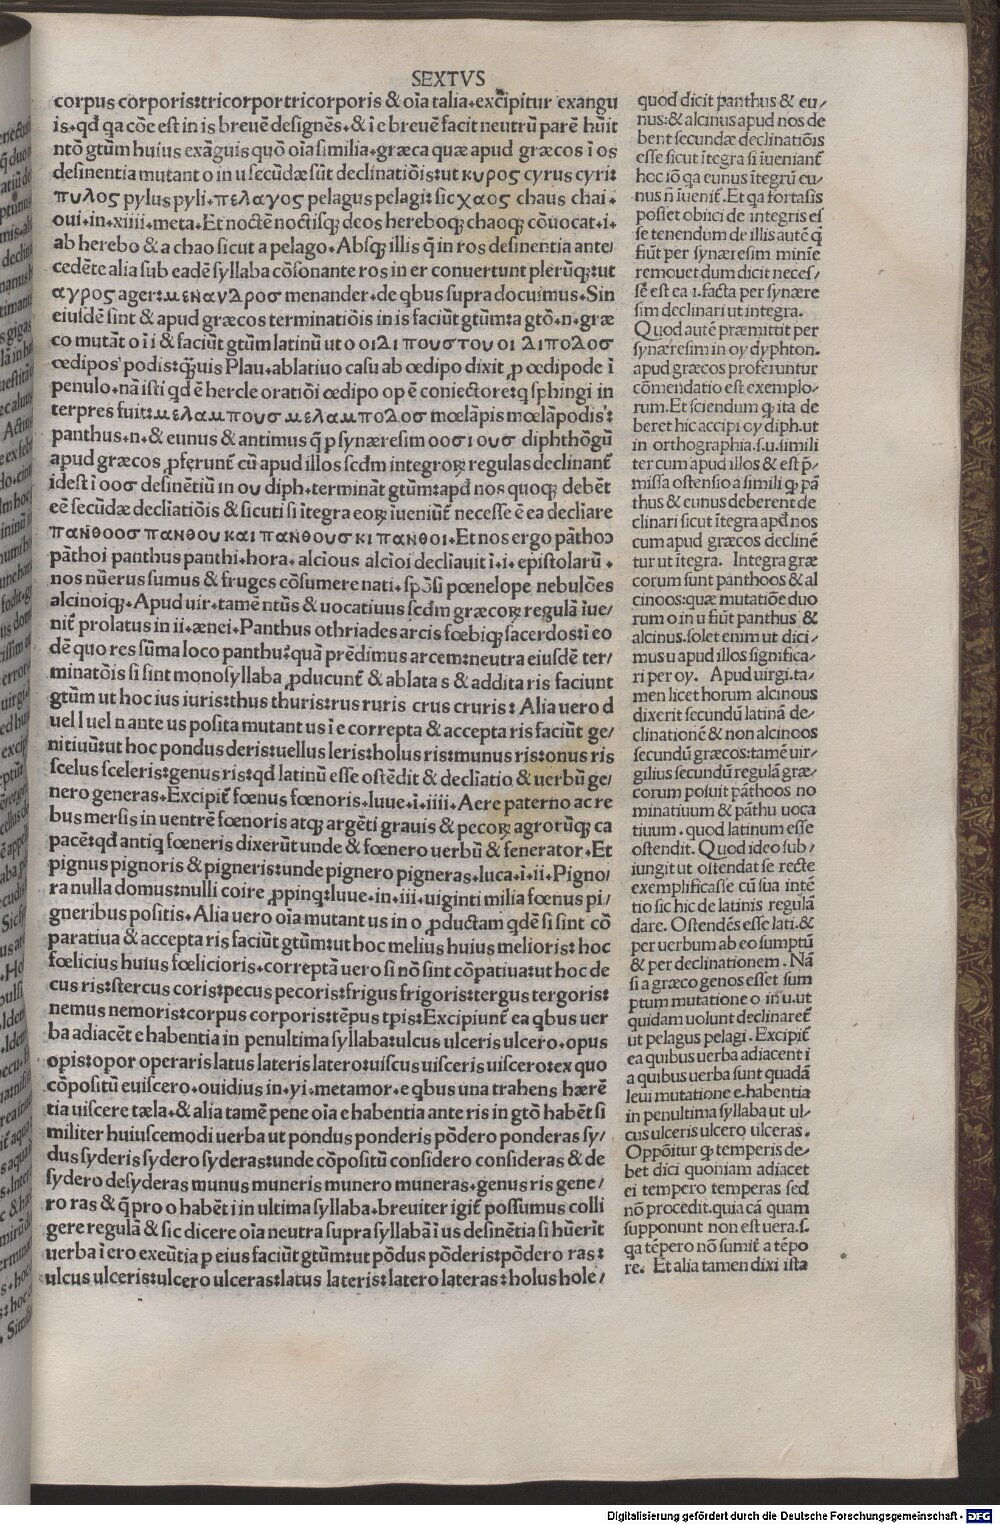 SEXTVS
corpus corporis:tricorpor tricorporis & oīa talia.excipitur exangu
is.qđ qa cōe est in is breuē designēs.& ī e breuē facit neutrū parē hūit
ntō gtūm huius exāguis quō oīa similia.græca quæ apud græcos ī os
desinentia mutant o in u secūdæ sūt declinatiōis:ut κυρος cyrus cyri:
πυλος pylus pyli.πελαγος pelagus pelagi:sic χαος chaus chai.
oui.in.xiiii.meta.Et noctē noctisq; deos hereboq; chaoq; cōuocat.i.
ab herebo & a chao sicut a pelago.Absq; illis q̄ in ros desinentia ante/
cedēte alia sub eadē syllaba cōsonante ros in er conuertunt plerūq;:ut
αγρος ager:μενανδροσ menander.de qbus supra docuimus.Sin
eiusdē sint & apud græcos terminatiōis in is faciūt gtūm:a gtō.n.græ
co mutāt o ī i & faciūt gtūm latinū ut o οιδιπουστου οιδιποδοσ
œdipos podis:q̄uis Plau.ablatiuo casu ab œdipo dixit ꝓ œdipode ī
penulo.nā isti qd ē hercle oratiōi œdipo op ē coniectore:q sphingi in
terpres fuit:μελαμπουσ μελαμποδοσ mœlāpis mœlāpodis:
panthus.n.& eunus & antimus q̄ p synæresim οοσ ι ουσ diphthōgū
apud græcos ꝓferunt̄ cū apud illos scđm integroꝝ regulas declinant̄
idest ī οοσ desinētiū in ου diph.terminat̄ gtūm:apđ nos quoq; debēt
eē secūdæ declatiōis & sicuti si ītegra eoꝝ īueniūt̄ necesse ē ea decliare
πανθοοσ πανθου και πανθουσ κι πανθοι.Et nos ergo pāthoɔ
pāthoi panthus panthi.hora.alcīous alcīoi decliauit ī.i.epistolarū.
nos nūerus sumus & fruges cōsumere nati.spōsi pœnelope nebulōes
alcinoiq;.Apud uir.tamē ntūs & uocatiuus scđm græcoꝝ regulā īue/
nit̄ prolatus in ii.ænei.Panthus othriades arcis fœbiq; sacerdos:ī eo
dē quo res sūma loco panthu:quā prēdimus arcem:neutra eiusdē ter/
minatōis si sint monosyllaba ꝓducunt̄ & ablata s & addita ris faciunt
gtūm ut hoc ius iuris:thus thuris:rus ruris crus cruris: Alia uero d
uel l uel n ante us posita mutant us ī e correpta & accepta ris faciūt ge/
nitiuū:ut hoc pondus deris:uellus leris:holus ris:munus ris:onus ris
scelus sceleris:genus ris:qđ latinū esse ostēdit & decliatio & uerbū ge/
nero generas.Excipit̄ fœnus fœnoris.luue.ī.iiii.Aere paterno ac re
bus mersis in uentrē fœnoris atq; argēti grauis & pecoꝝ agrorūq; ca
pacē:qđ antiq fœneris dixerūt unde & fœnero uerbū & fenerator.Et
pignus pignoris & pigneris:unde pignero pigneras.luca.ī.ii.Pigno/
ra nulla domus:nulli coire ꝓpinq:luue.in.iii.uiginti milia fœnus pi/
gneribus positis.Alia uero oīa mutant us in o ꝓductam qdē si sint cō
paratiua & accepta ris faciūt gtūm:ut hoc melius huius melioris: hoc
fœlicius huius fœlicioris.correptā uero si nō sint cōpatiua:ut hoc de
cus ris:stercus coris:pecus pecoris:frigus frigoris:tergus tergoris:
nemus nemoris:corpus corporis:tēpus tpis:Excipiunt̄ ea qbus uer
ba adiacēt e habentia in penultima syllaba:ulcus ulceris ulcero.opus
opis:opor operaris latus lateris latero:uiscus uisceris uiscero:ex quo
cōpositū euiscero.ouidius in.yi.metamor.e qbus una trahens hærē
tia uiscere tæla.& alia tamē pene oīa e habentia ante ris in gtō habēt si
militer huiuscemodi uerba ut pondus ponderis pōdero ponderas sy/
dus syderis sydero syderas:unde cōpositū considero consideras & de
sydero desyderas munus muneris munero muneras.genus ris gene/
ro ras & q̄ pro o habēt i in ultima syllaba.breuiter igit̄ possumus colli
gere regulā & sic dicere oīa neutra supra syllabā ī us desinētia si hūerīt
uerba ī ero exeūtia p eius faciūt gtūm:ut pōdus pōderis:pōdero ras:
ulcus ulceris:ulcero ulceras:latus lateris:latero lateras:holus hole/
quod dicit panthus & eu/
nus:& alcinus apud nos de
bent secundæ declinatiōis
esse sicut ītegra si īueniant̄
hoc iō qa eunus ītegrū eu/
nus ñ īuenit̄.Et qa fortassis
posset obiici de integris es
se tenendum de illis autē q̄
fiūt per synæresim minīe
remouet dum dicit neces/
sē est ea ı.facta per synære
sim declinari ut integra.
Quod autē præmittit per
synæresim in oy dyphton.
apud græcos proferuntur
cōmendatio est exemplo/
rum.Et sciendum ꝙ ita de
beret hic accipi oy diph.ut
in orthographia.s.u.simili
ter cum apud illos & est p̄/
missa ostensio a simili ꝙ pā
thus & eunus deberent de
clinari sicut ītegra apđ nos
cum apud græcos declinē
tur ut ītegra. Integra græ
corum sunt panthoos & al
cinoos:quæ mutatiōe duo
rum o in u fiūt panthus &
alcinus.solet enim ut dici/
mus u apud illos significa/
ri per oy. Apud uirgi.ta/
men licet horum alcinous
dixerit secundū latinā de/
clinationē & non alcinoos
secundū græcos:tamē uir/
gilius secundū regulā græ/
corum posuit pāthoos no
minatiuum & pāthu uoca
tiuum.quod latinum esse
ostendit.Quod ideo sub/
iungit ut ostendat se recte
exemplificasse cū sua intē
tio sic hic de latinis regulā
dare. Ostendēs esse lati.&
per uerbum ab eo sumptū
& per declinationem. Nā
si a græco genos esset sum
ptum mutatione o in u.ut
quidam uolunt declinaret̄
ut pelagus pelagi.Excipit̄
ea quibus uerba adiacent ī
a quibus uerba sunt quadā
leui mutatione e.habentia
in penultima syllaba ut ul/
cus ulceris ulcero ulceras.
Oppōitur ꝙ temperis de/
bet dici quoniam adiacet
ei tempero temperas sed
nō procedit.quia cā quam
supponunt non est uera.s.
qa tēpero nō sumit̄ a tēpo
re. Et alia tamen dixi ista
Digitalisierung gefördert durch die Deutsche Forschungsgemeinschaft - DFG